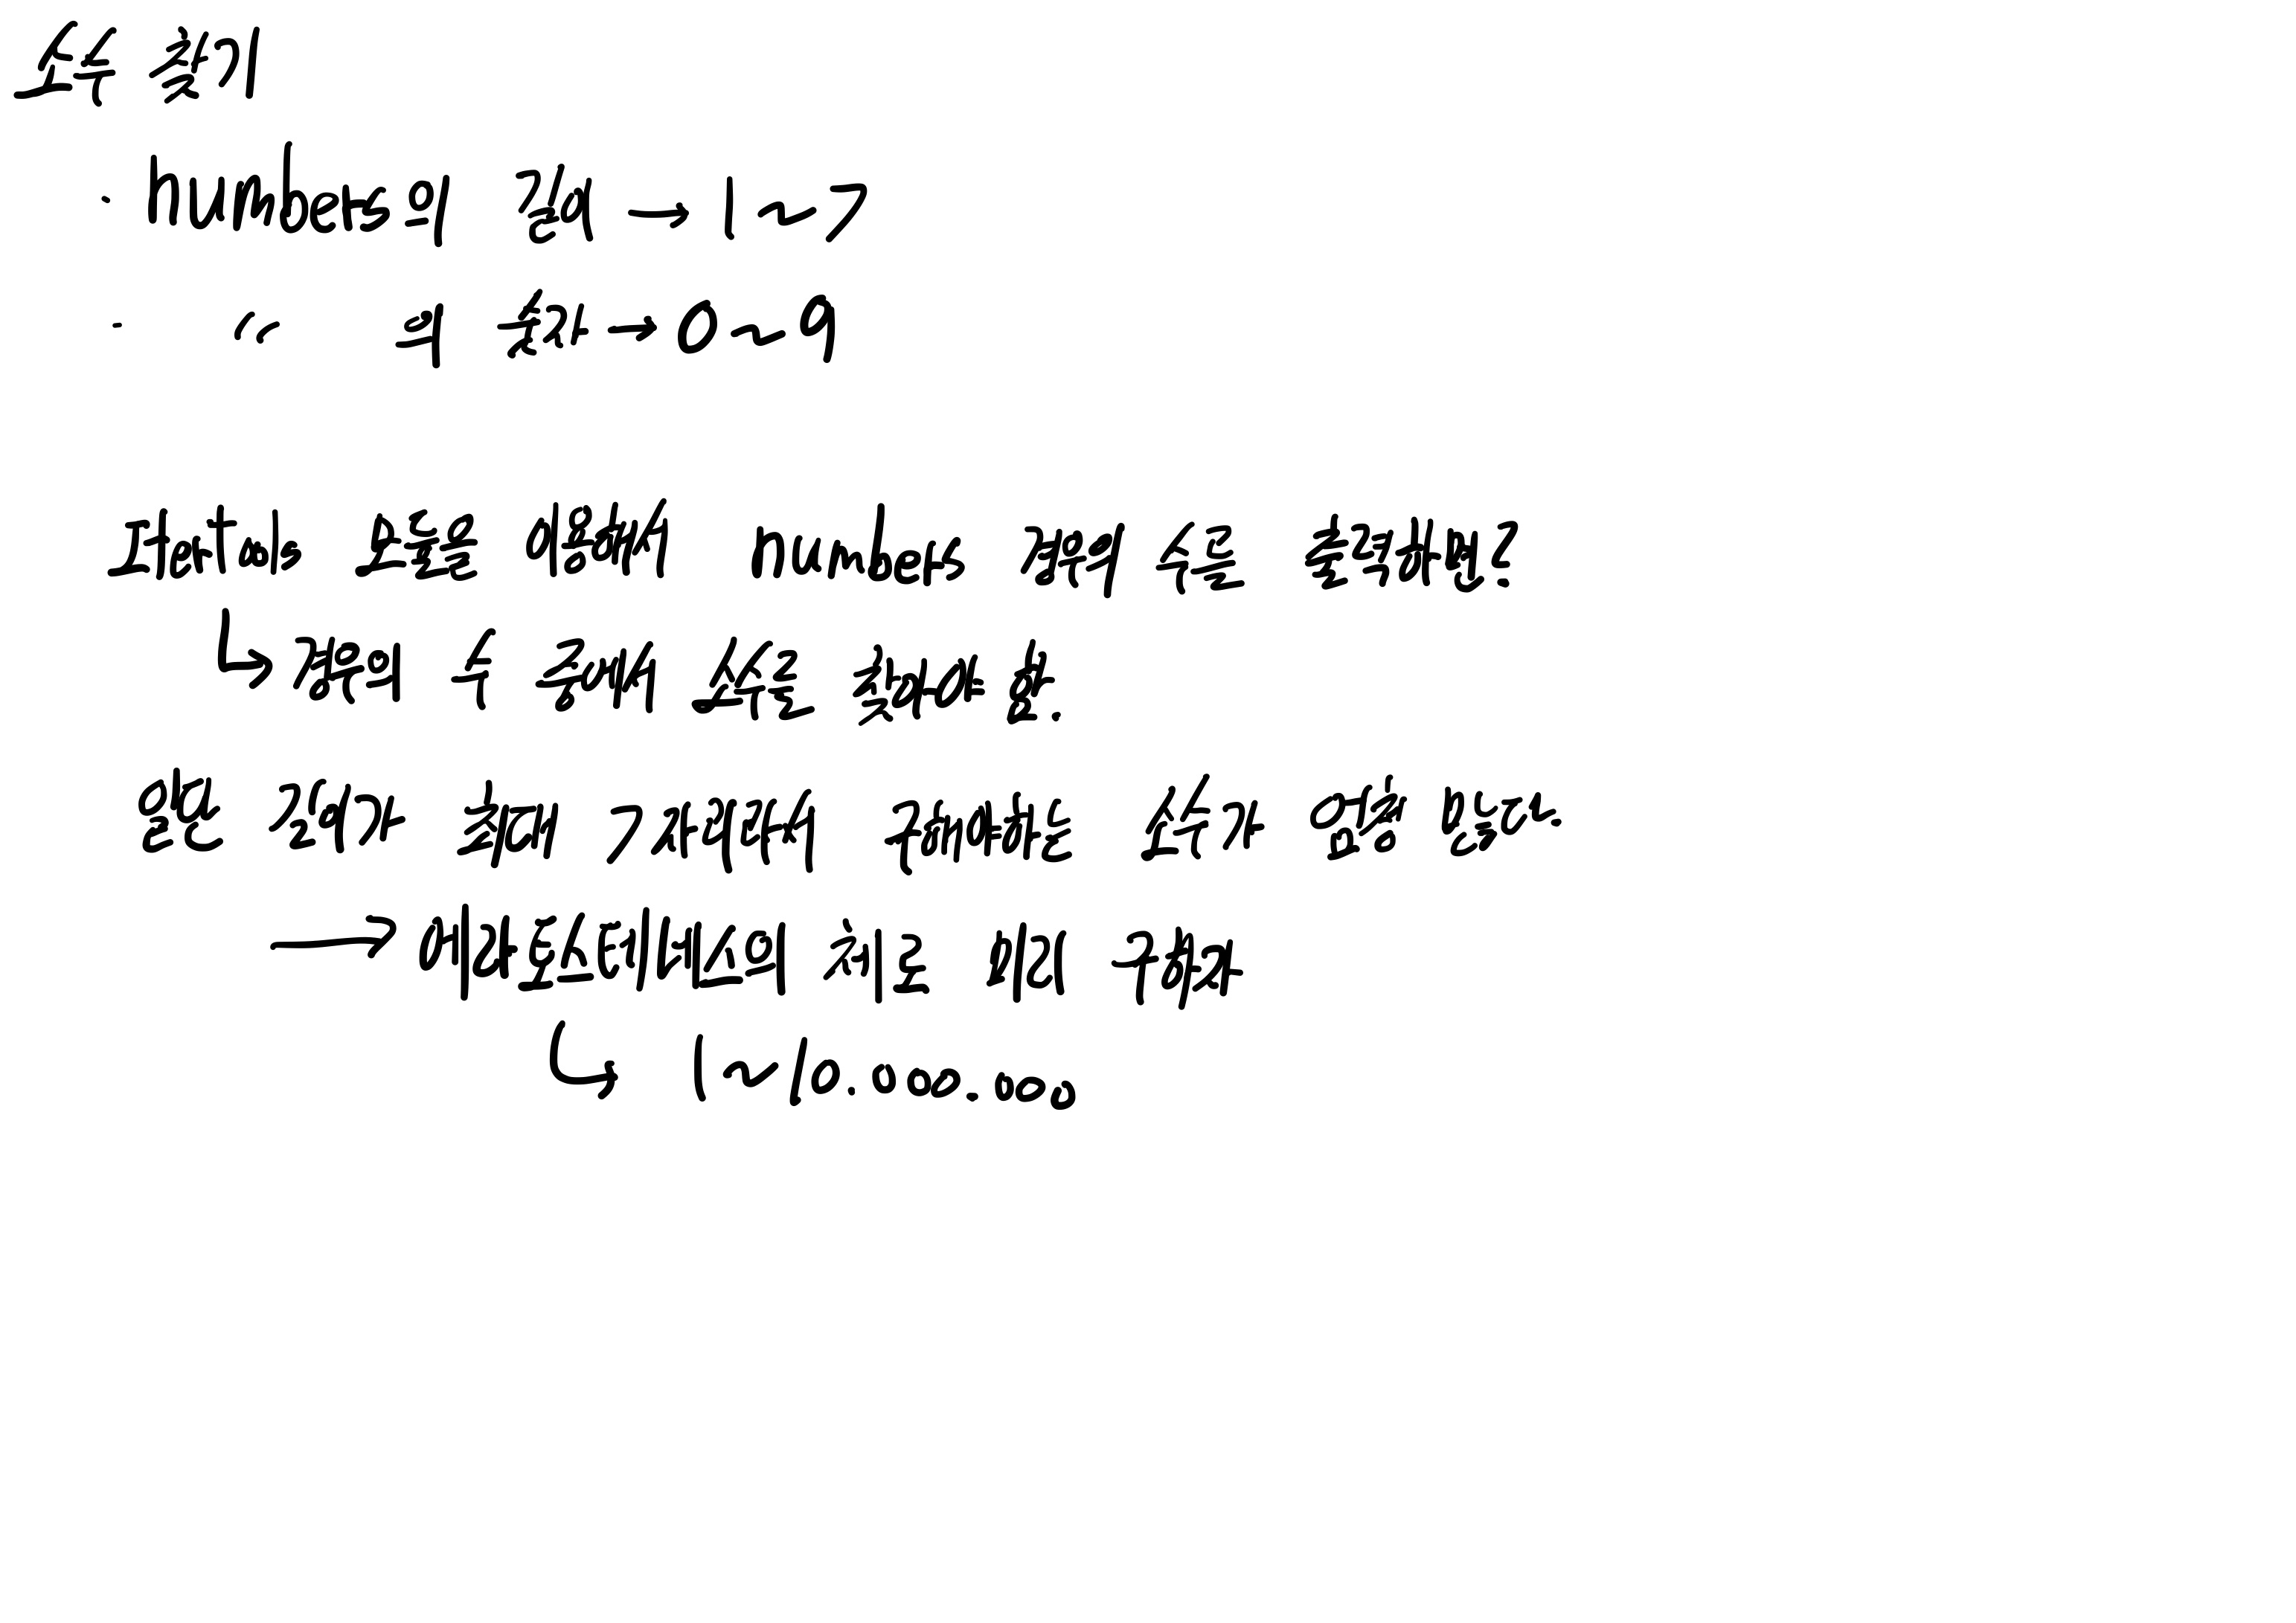 소수 찾기
· numbers의 길이 → 1 ~ 7
· " 의 숫자 → 0 ~ 9
모듈을 이용해서 numbers 경우의 수를 출력하면?
↳ 경우의 수 중에서 소수를 찾아야 함.
일단 길이가 최대 7자리여서 구해야하는 소수가 엄청 많네.
→ 에라토스테네스의 체로 미리 구하자
↳ 1 ~ 10.000.000